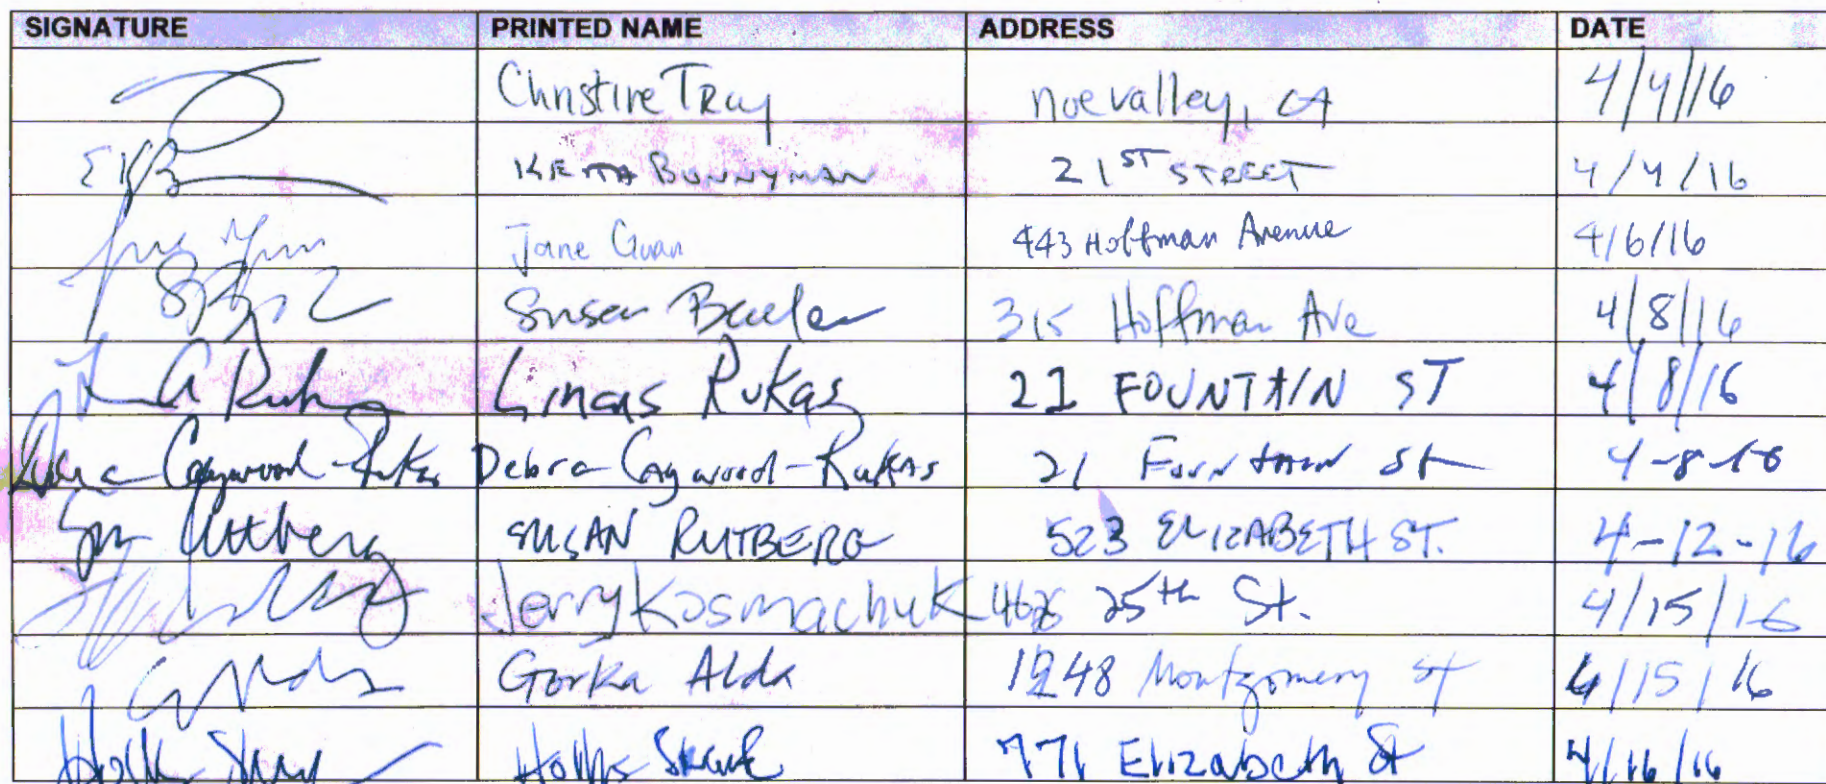 SIGNATURE PRINTED NAME ADDRESS DATE
Christine Tray Noe valley, CA 4/4/16
EKB KEITA BUNNYMAN 21ST STREET 4/4/16
Jane Guan 443 Hoffman Avenue 4/6/16
Susan 315 Hoffman Ave 4/8/16
Linas Rukas 21 FOUNTAIN ST 4/8/16
Debra Caywood-Rukas Debra Caywood-Rukas 21 Fountain St 4-8-16
Rutberg SUSAN RUTBERG 523 ELIZABETH ST. 4-12-16
Jerry Kosmachuk 25th St. 4/15/16
Gorka Alda 1248 Montgomery st 4/15/16
771 Elizabeth St 4/16/16